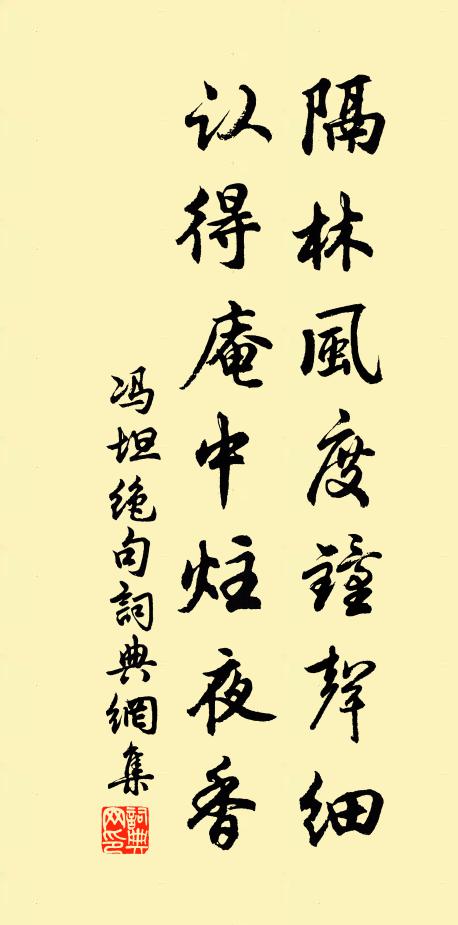 隔林風度鐘聲細
认得庵中炷夜香
冯坦绝句詞典網集
詞典网印